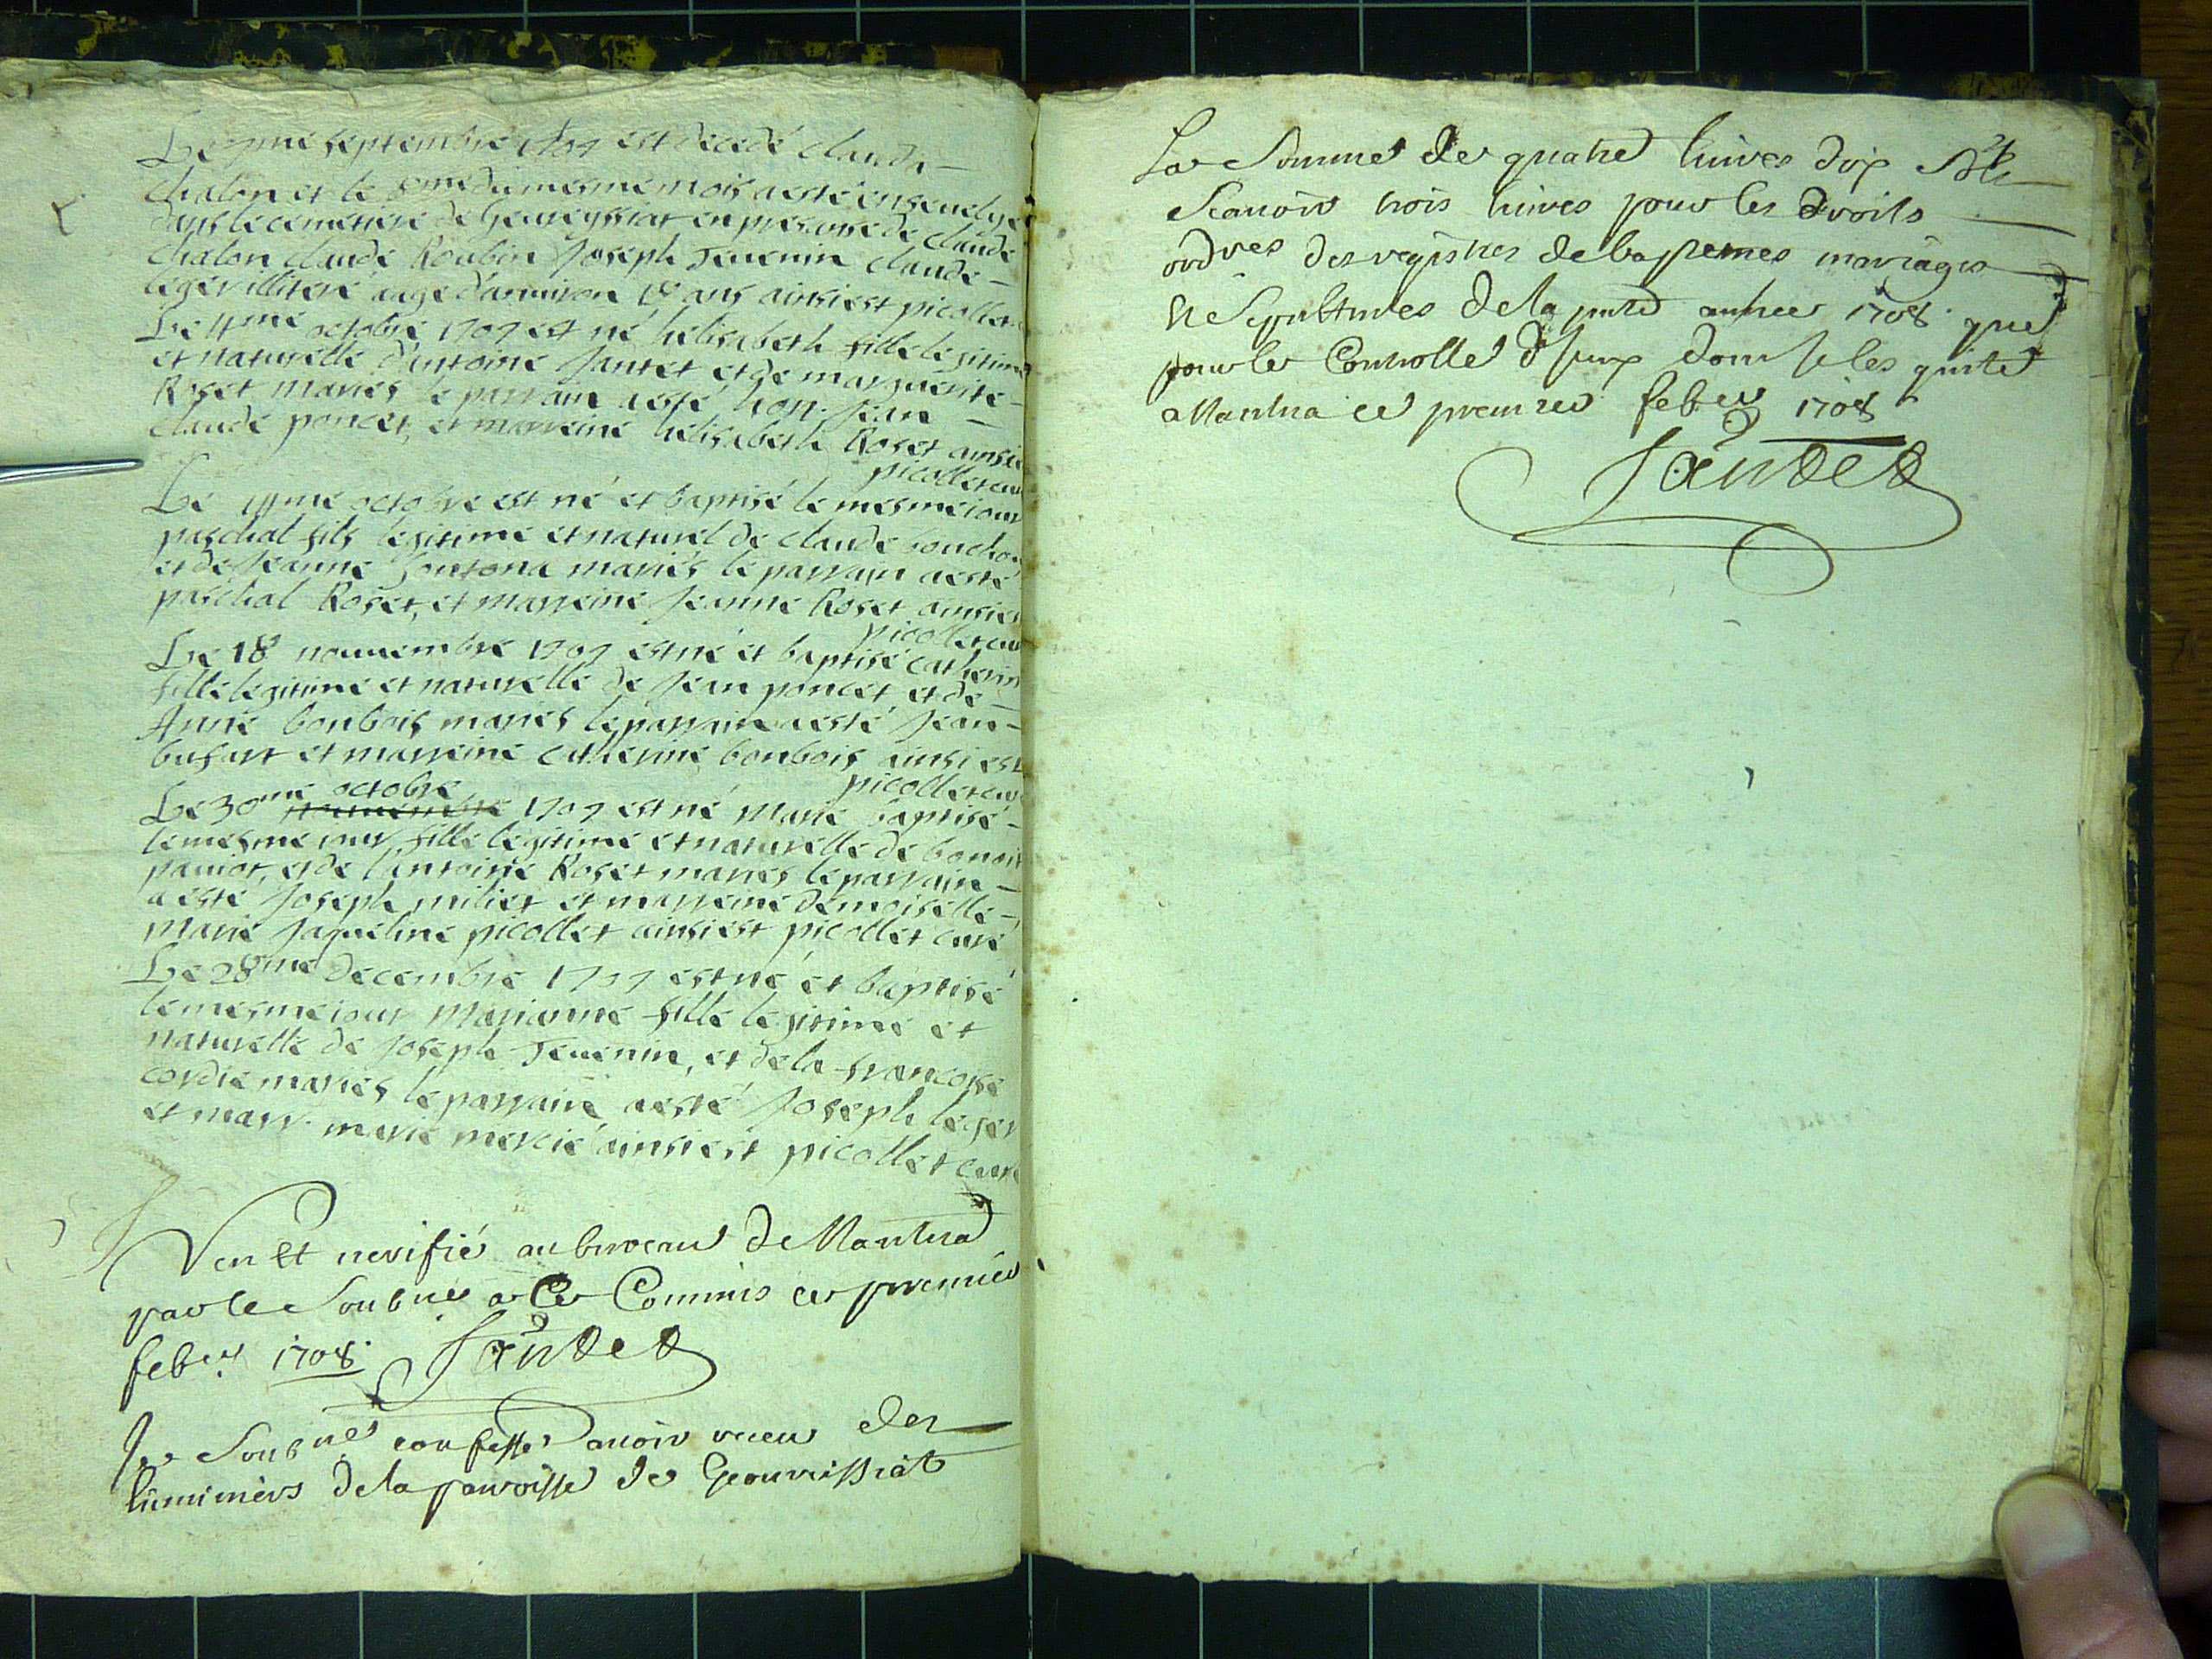 Le 7me septembre 1707 est decedé claude
chalon et le 8me du mesme mois a esté ensevelye
dans le cemetiere de Geovreyssiat en presance de claude
chalon claude Roubin Joseph Tevenin claude
legér illiteré aagé d'anviron ans ainsi est picollet
Le 11me octobre 1707 est né helisabeth fille legitime
et naturelle d'antoine Jantet et de marguerite
Roset mariés le parrain a esté hon. Jean
claude poncet, et marreine helisabeth Roset ainsi
picollet curé
Le octobre est né et baptisé le mesme iour
paschal fils legitime et naturel de claude
et de Jeanne mariés le parrain a esté
paschal Roset, et marreine Jeanne Roset ainsi est
picollet curé
Le 18 nouuembre 1707 est né et baptisé catherine
fille legitime et naturelle de Jean poncet et de
Anne bonbois mariés le parrain a esté Jean
busart et marreine catherine bonbois ainsi est
picollet curé
octobre
Le 30me nouuembre 1707 est né Marie baptisé
le mesme iour fille legitime et naturelle de benoit
paviot, et de l'antoine Roset mariés le parrain
a esté Joseph milier et marreine demoiselle
Marie Jaqueline picollet ainsi est picollet curé
Le 28me decembre 1707 est né et baptisé
le mesme iour Marianne fille legitime et
naturelle de Joseph Tevenin, et de la francoise
cordie mariés le parrain a esté Joseph leger
et marr. marie mercié ainsi est picollet curé
Veu Et verifié au bureau de Nantua
par le Soubné a Ce Commis ce premier
feber 1708. Jantet
Je Soubné confesse avoir receu des
luminiers de la parroisse de Geouvrissiat
La Somme de quatre livres dix
Scavoir trois livres pour les droits
ordres des registres de baptemes mariages
Et Sepultures de la pnte annee 1708. que
pour le Controlle d'Iceux dont Je les quitte
a Nantua ce premier feber 1708
Jantet